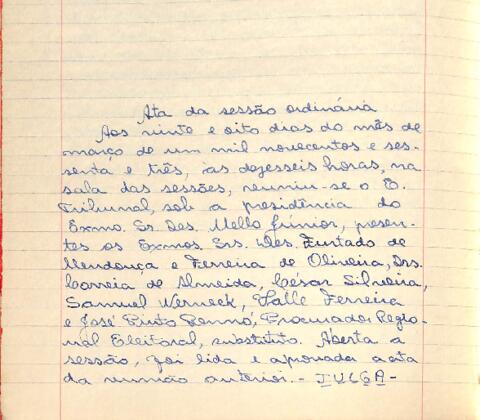 Ata da sessão ordinária
Aos vinte e oito dias do mês de
março de um mil novecentos e ses-
senta e três, às dezesseis horas, na
sala das sessões, reuniu-se o E.
Tribunal, sob a presidência do
Exmo. Sr. Des. Mello Júnior, presen-
tes os Exmos. Srs. Des. Furtado de
Mendonça e Ferreira de Oliveira, Drs.
Correia de Almeida, César Silveira,
Samuel Werneck, Valle Ferreira
e José Pinto Renno, Procurador Regio-
nal Eleitoral, substituto. Aberta a
sessão, foi lida e aprovada a ata
da reunião anterior. - JULGA-